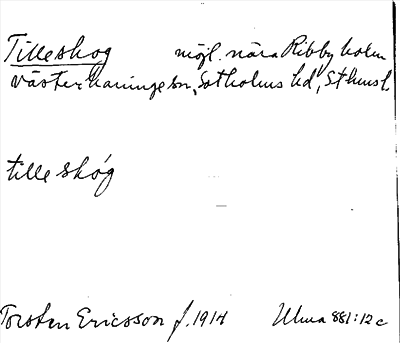 Tilleskog möjl. nära Ribby holm
Västerhaninge sn, Sotholms hd, Sthms l.
tille skóg
Torsten Ericsson f. 1914 Uluma 881:12 c